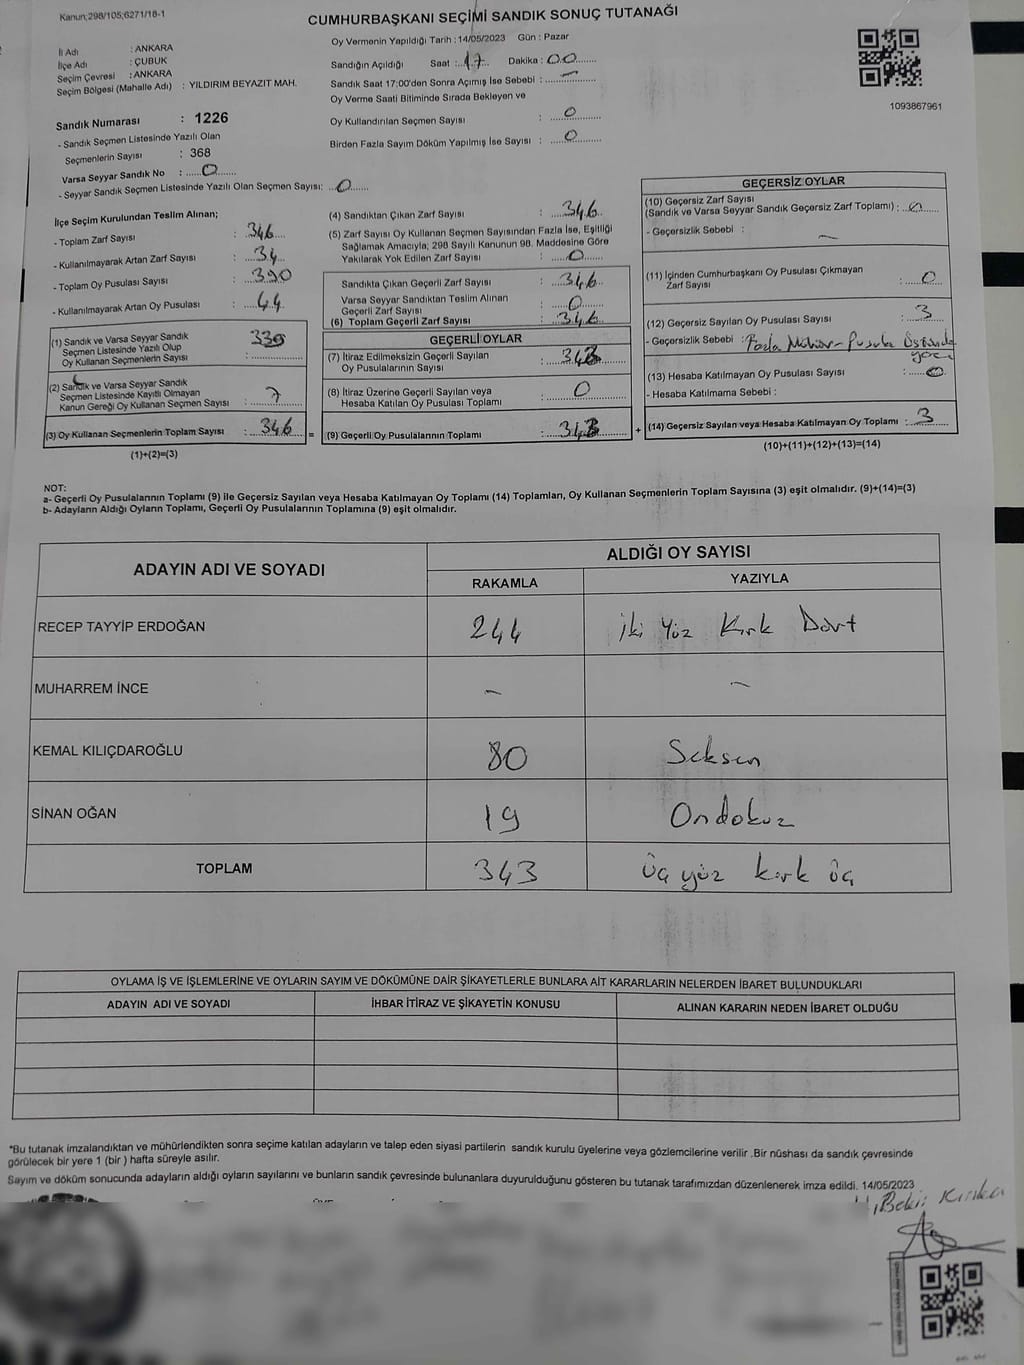 Kanun;298/105;6271/18-1
CUMHURBAŞKANI SEÇİMİ SANDIK SONUÇ TUTANAĞI
İl Adı : ANKARA
İlçe Adı : ÇUBUK
Seçim Çevresi : ANKARA
Seçim Bölgesi (Mahalle Adı) : YILDIRIM BEYAZIT MAH.
Oy Vermenin Yapıldığı Tarih : 14/05/2023 Gün : Pazar
Sandığın Açıldığı Saat : 17 Dakika : 00
Sandık Saat 17:00'den Sonra Açımış İse Sebebi : -
Oy Verme Saati Bitiminde Sırada Bekleyen ve
Oy Kullandırılan Seçmen Sayısı : 0
Birden Fazla Sayım Döküm Yapılmış İse Sayısı : 0
1093867961
Sandık Numarası : 1226
- Sandık Seçmen Listesinde Yazılı Olan
Seçmenlerin Sayısı : 368
Varsa Seyyar Sandık No : 0
- Seyyar Sandık Seçmen Listesinde Yazılı Olan Seçmen Sayısı: 0
İlçe Seçim Kurulundan Teslim Alınan;
- Toplam Zarf Sayısı : 346
- Kullanılmayarak Artan Zarf Sayısı : 34
- Toplam Oy Pusulası Sayısı : 390
- Kullanılmayarak Artan Oy Pusulası : 44
(1) Sandık ve Varsa Seyyar Sandık
Seçmen Listesinde Yazılı Olup
Oy Kullanan Seçmenlerin Sayısı : 339
(2) Sandık ve Varsa Seyyar Sandık
Seçmen Listesinde Kayıtlı Olmayan
Kanun Gereği Oy Kullanan Seçmen Sayısı : 7
(3) Oy Kullanan Seçmenlerin Toplam Sayısı : 346
(1)+(2)=(3)
(4) Sandıktan Çıkan Zarf Sayısı : 346
(5) Zarf Sayısı Oy Kullanan Seçmen Sayısından Fazla İse, Eşitliği
Sağlamak Amacıyla; 298 Sayılı Kanunun 98. Maddesine Göre
Yakılarak Yok Edilen Zarf Sayısı : 0
Sandıkta Çıkan Geçerli Zarf Sayısı : 346
Varsa Seyyar Sandıktan Teslim Alınan
Geçerli Zarf Sayısı : 0
(6) Toplam Geçerli Zarf Sayısı : 346
GEÇERLİ OYLAR
(7) İtiraz Edilmeksizin Geçerli Sayılan
Oy Pusulalarının Sayısı : 343
(8) İtiraz Üzerine Geçerli Sayılan veya
Hesaba Katılan Oy Pusulası Toplamı : 0
= (9) Geçerli Oy Pusulalarının Toplamı : 343 +
GEÇERSİZ OYLAR
(10) Geçersiz Zarf Sayısı
(Sandık ve Varsa Seyyar Sandık Geçersiz Zarf Toplamı) : 0
- Geçersizlik Sebebi : -
(11) İçinden Cumhurbaşkanı Oy Pusulası Çıkmayan
Zarf Sayısı : 0
(12) Geçersiz Sayılan Oy Pusulası Sayısı : 3
- Geçersizlik Sebebi : Fazla Mühür - Pusula Üstünde
(13) Hesaba Katılmayan Oy Pusulası Sayısı : 0
- Hesaba Katılmama Sebebi :
(14) Geçersiz Sayılan veya Hesaba Katılmayan Oy Toplamı : 3
(10)+(11)+(12)+(13)=(14)
NOT:
a- Geçerli Oy Pusulalarının Toplamı (9) ile Geçersiz Sayılan veya Hesaba Katılmayan Oy Toplamı (14) Toplamları, Oy Kullanan Seçmenlerin Toplam Sayısına (3) eşit olmalıdır. (9)+(14)=(3)
b- Adayların Aldığı Oyların Toplamı, Geçerli Oy Pusulalarının Toplamına (9) eşit olmalıdır.
ADAYIN ADI VE SOYADI
ALDIĞI OY SAYISI
RAKAMLA YAZIYLA
RECEP TAYYİP ERDOĞAN 244 iki Yüz Kırk Dört
MUHARREM İNCE - -
KEMAL KILIÇDAROĞLU 80 Seksen
SİNAN OĞAN 19 Ondokuz
TOPLAM 343 üç yüz kırk üç
OYLAMA İŞ VE İŞLEMLERİNE VE OYLARIN SAYIM VE DÖKÜMÜNE DAİR ŞİKAYETLERLE BUNLARA AİT KARARLARIN NELERDEN İBARET BULUNDUKLARI
ADAYIN ADI VE SOYADI İHBAR İTİRAZ VE ŞİKAYETİN KONUSU ALINAN KARARIN NEDEN İBARET OLDUĞU
*Bu tutanak imzalandıktan ve mühürlendikten sonra seçime katılan adayların ve talep eden siyasi partilerin sandık kurulu üyelerine veya gözlemcilerine verilir .Bir nüshası da sandık çevresinde
görülecek bir yere 1 (bir ) hafta süreyle asılır.
Sayım ve döküm sonucunda adayların aldığı oyların sayılarını ve bunların sandık çevresinde bulunanlara duyurulduğunu gösteren bu tutanak tarafımızdan düzenlenerek imza edildi. 14/05/2023